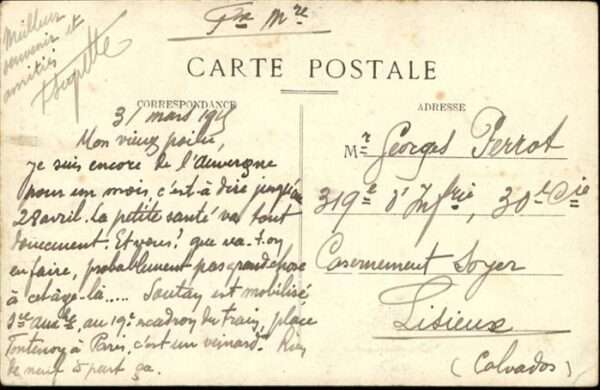 Fse Mre
Meilleur
souvenir et
amitiés
CARTE POSTALE
CORRESPONDANCE
31 mars 1915
Mon vieux poilu,
je suis encore de l'Auvergne
pour un mois, c'est-à-dire jusqu'au
28 avril. La petite santé va tout
doucement. Et vous? que va-t-on
en faire, probablement pas grand chose
à cet âge-là.....  Soutay est mobilisé
au 19e escadron du train, place
Fontenoy à Paris. c'est un veinard. Rien
de neuf à part ça.
ADRESSE
Mr Georges Perrot
319e d'Infrie, 30e Cie
Casernement Soyer
Lisieux
(Calvados)